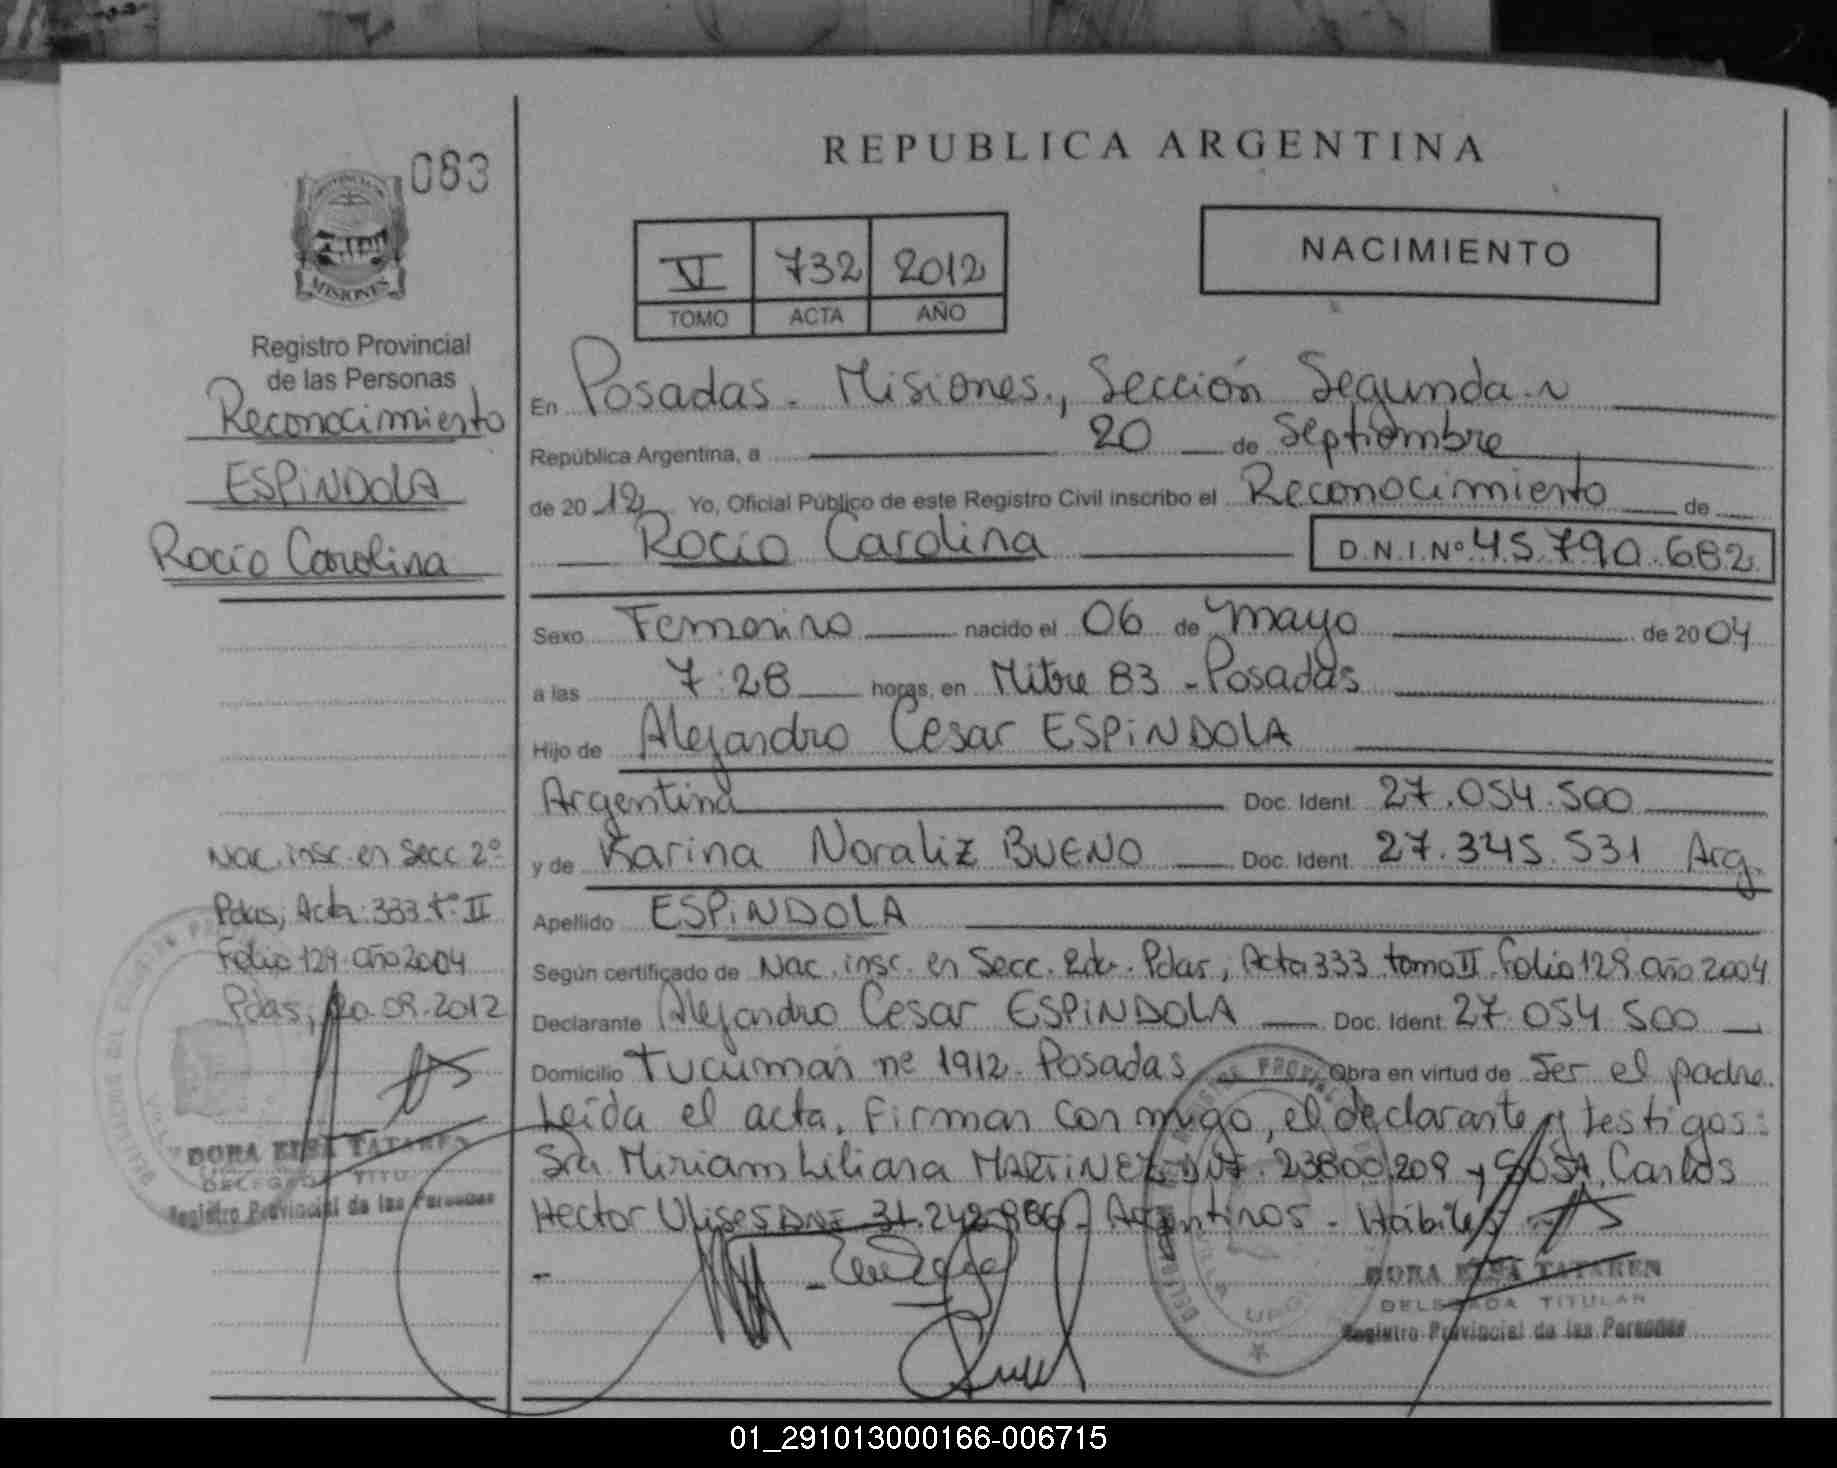 083
REPUBLICA ARGENTINA
MISIONES
VI 732 2012
TOMO ACTA AÑO
NACIMIENTO
Registro Provincial
de las Personas
Reconocimiento
ESPiNDOLA
Rocio Carolina
En Posadas - Misiones, Sección Segunda
República Argentina, a 20 de Septiembre
de 2012 Yo, Oficial Público de este Registro Civil inscribo el Reconocimiento de
Rocio Carolina D.N.I.Nº 45.790.682
Sexo Femenino nacido el 06 de mayo de 2004
a las 7:28 horas, en Mitre 83 - Posadas
Hijo de Alejandro Cesar ESPiNDOLA
Argentina Doc. Ident. 27.054.500
y de Karina Noraliz BUENO Doc. Ident. 27.345.531 Arg.
Apellido ESPiNDOLA
Según certificado de Nac. insc. en Secc. 2da. Pdas, Acta 333 tomo II Folio 129 año 2004
Declarante Alejandro Cesar ESPiNDOLA Doc. Ident. 27.054.500
Domicilio Tucumán nº 1912 - Posadas Obra en virtud de Ser el padre.
Leída el acta, Firman conmigo, el declarante y testigos:
Sra Miriam Liliana MARTiNEZ DNI. 23800.209 y SOSA, Carlos
Hector Ulises DNI 31.242.986 - Argentinos - Hábiles
Nac. insc. en Secc 2º
Pdas, Acta: 333 tº II
Folio 129 año 2004
Pdas, 20.09.2012
DORA ELSA TATAREN
DELEGADA TITULAR
Registro Provincial de las Personas
DORA ELSA TATAREN
DELEGADA TITULAR
Registro Provincial de las Personas
01_291013000166-006715